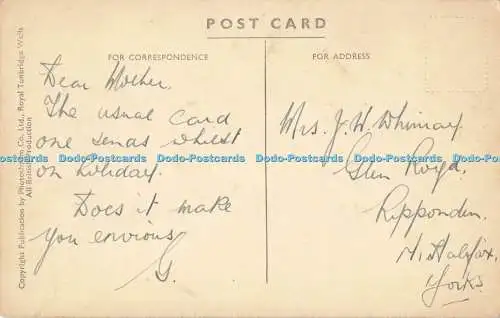 POST CARD
FOR CORRESPONDENCE
Dear Mother,
The usual card
one sends whilst
on holiday.
Does it make
you envious
G.
FOR ADDRESS
Mrs. J. W. Whimay
Glen Royd,
Ripponden.
Halifax,
Yorks.
Copyright Publication by Photochrom Co. Ltd., Royal Tunbridge Wells
All British Production
Dodo-Postcards Dodo-Postcards Dodo-Postcards Dodo-Postcards